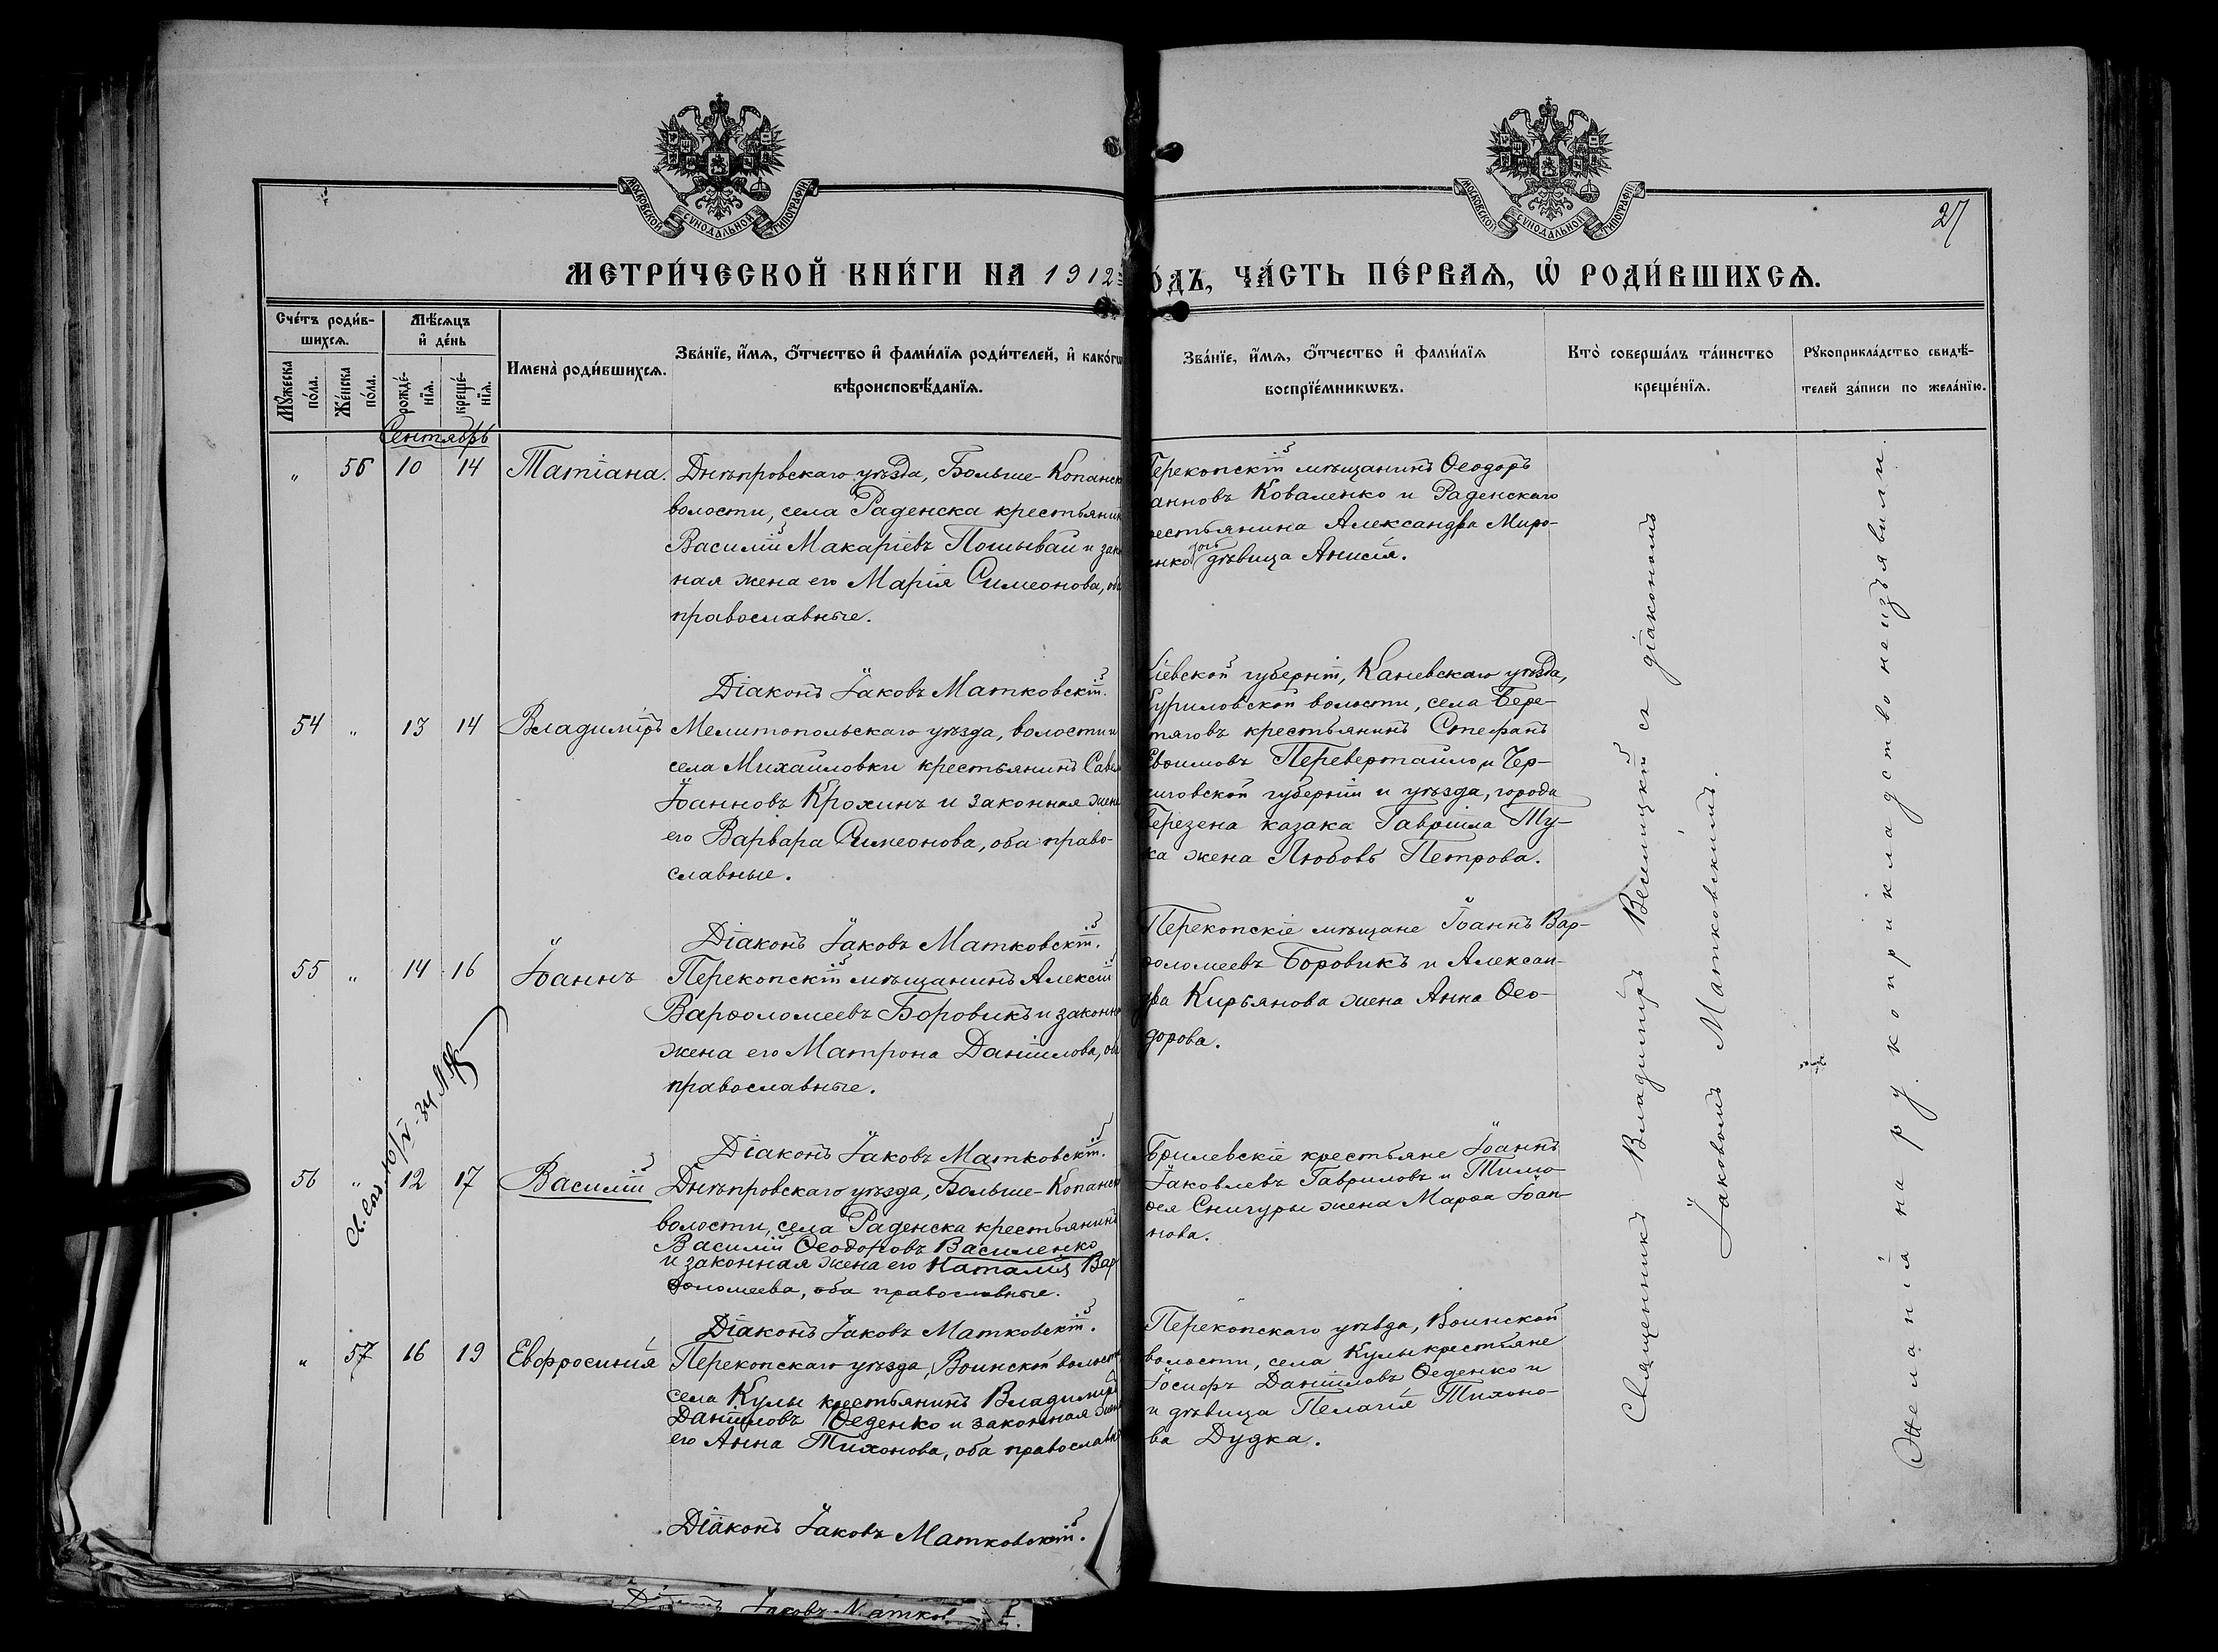 МОСКОВСКОЙ СУНОДАЛЬНОЙ ТИПОГРАФІИ
МОСКОВСКОЙ СУНОДАЛЬНОЙ ТИПОГРАФІИ
27
МЕТРИ́ЧЕСКОЙ КНИ́ГИ НА 1912
О́ДЪ, ЧА́СТЬ ПЕ́РВАЯ, Ѡ РОДИ́ВШИХСЯ.
Сче́тъ роди́в-
шихся.
Мѣ́сяцъ
и де́нь
Мꙋ́жеска по́ла.
Же́нска по́ла.
рожде́-
нїя.
креще́-
нїя.
Имена̀ роди́вшихся.
Зва́нїе, и́мя, ѻ́тчество и фами́лїя роди́телей, и како́гѡ
вѣроисповѣ́данїя.
Зва́нїе, и́мя, ѻ́тчество и фами́лїя
воспрїе́мникѡвъ.
Кто̀ соверша́лъ та́инство
креще́нїя.
Рꙋкоприкла́дство свидѣ́-
телей за́писи по жела́нїю.
Сентябрь
" 56 10 14 Татіана.
Днѣпровскаго уѣзда, Больше-Копанск
волости, села Раденска крестьянин
Василій Макаріевъ Пошывай и зак
ная жена его Марія Симеонова, об
православные.
Діаконъ Іаковъ Матковскій.
Перекопскій мѣщанинъ Ѳеодоръ
анновъ Коваленко и Раденскаго
рестьянина Александра Миро-
енко дочь дѣвица Анисія.
54 " 13 14 Владиміръ
Мелитопольскаго уѣзда, волости и
села Михайловки крестьянинъ Сав
Іоанновъ Крохинъ и законная жена
его Варвара Симеонова, оба право-
славные.
Діаконъ Іаковъ Матковскій.
Кіевской губерніи, Каневскаго уѣзда,
уриловской волости, села Бере-
стяговъ крестьянинъ Стефанъ
Евѳимовъ Перевертайло, и Чер-
ниговской губерніи и уѣзда, города
Березена казака Гавріила Ту-
ка жена Любовь Петрова.
55 " 14 16 Іоаннъ
Перекопскій мѣщанинъ Алексій
Варѳоломеевъ Боровикъ и законн
жена его Матрона Даніилова, об
православные.
Діаконъ Іаковъ Матковскій.
Перекопскіе мѣщане Іоаннъ Вар-
ѳоломеевъ Боровикъ и Алексан-
дра Кирьянова жена Анна Ѳео-
дорова.
56 " 12 17 Василій
Днѣпровскаго уѣзда, Больше-Копанск
волости, села Раденска крестьянинъ
Василій Ѳеодоровъ Василенко
и законная жена его Наталія Вар
ѳоломеева, оба православные.
Діаконъ Іаковъ Матковскій.
Брилевскіе крестьяне Іоаннъ
Іаковлевъ Гавриловъ и Тимо-
ѳея Снигуры жена Марѳа Іоан-
нова.
" 57 16 19 Евфросинія
Перекопскаго уѣзда, Воинской волости
села Кулы крестьянинъ Владиміръ
Даніиловъ Ѳеденко и законная жена
его Анна Тихонова, оба православн
Діаконъ Іаковъ Матковскій.
Перекопскаго уѣзда, Воинской
волости, села Кулы крестьяне
Іосифъ Даніиловъ Ѳеденко и
и дѣвица Пелагія Тихоно-
ва Дудка.
Священникъ Владиміръ Велицкій съ діакономъ
Іаковомъ Матковскимъ.
Желанія на рукоприкладство не изъявили.
Іаковъ Матков